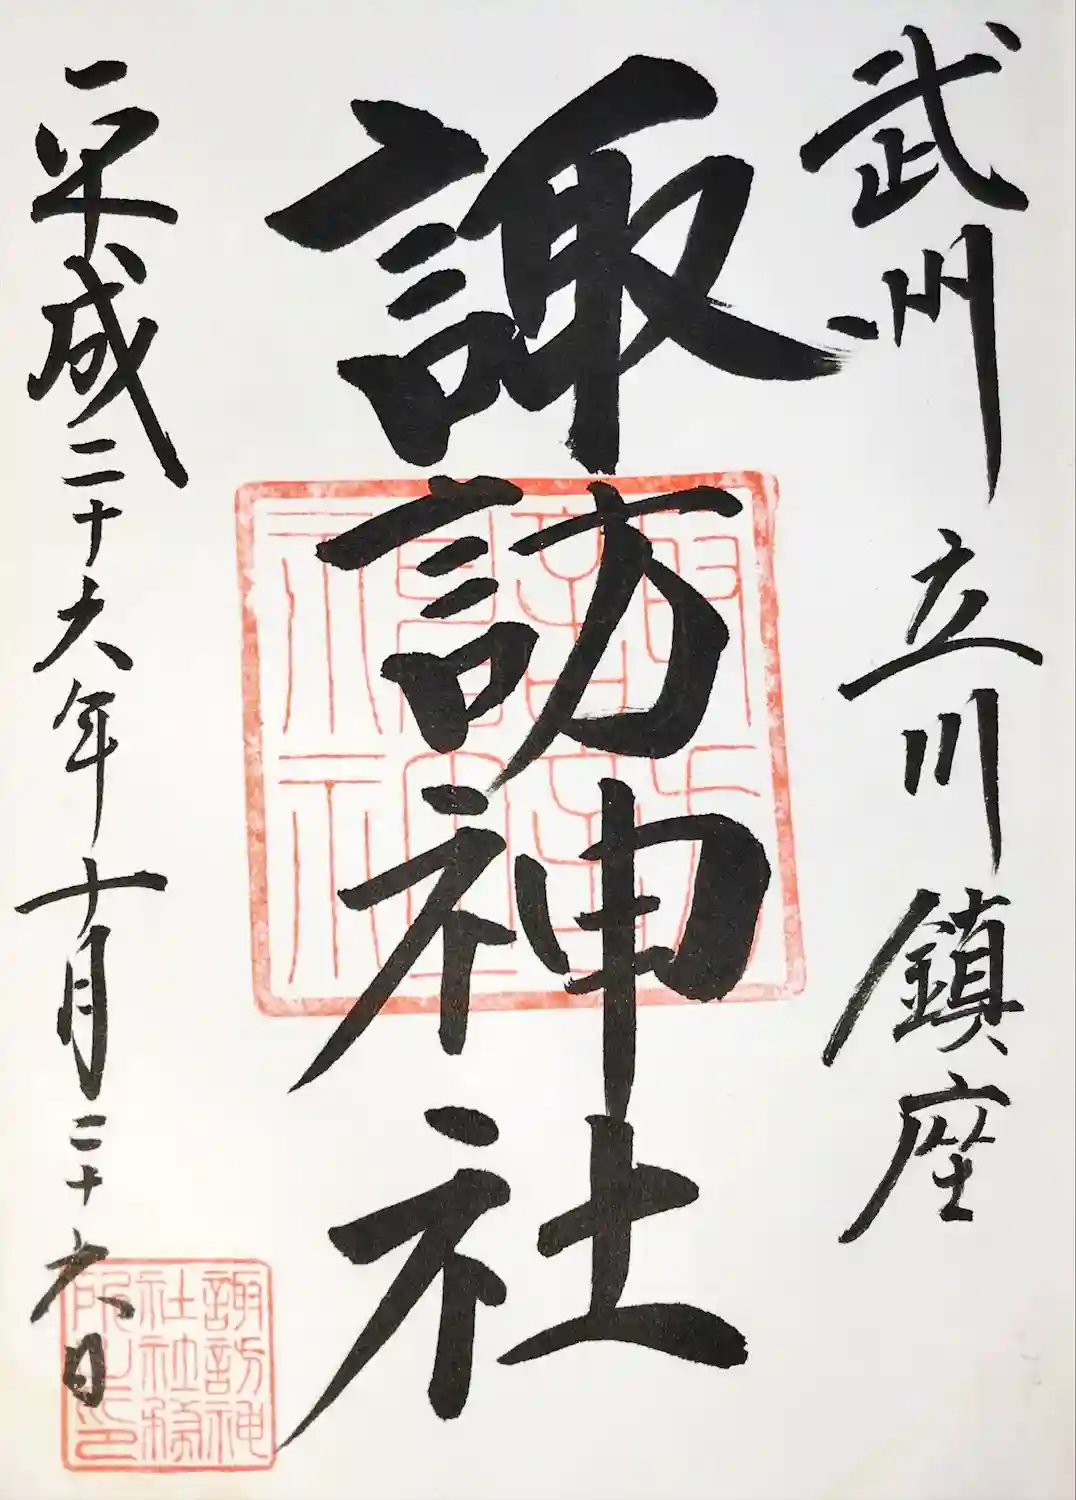 武州 立川 鎮座
諏訪神社
平成二十六年十月二十六日
諏訪神
社社務
所之印